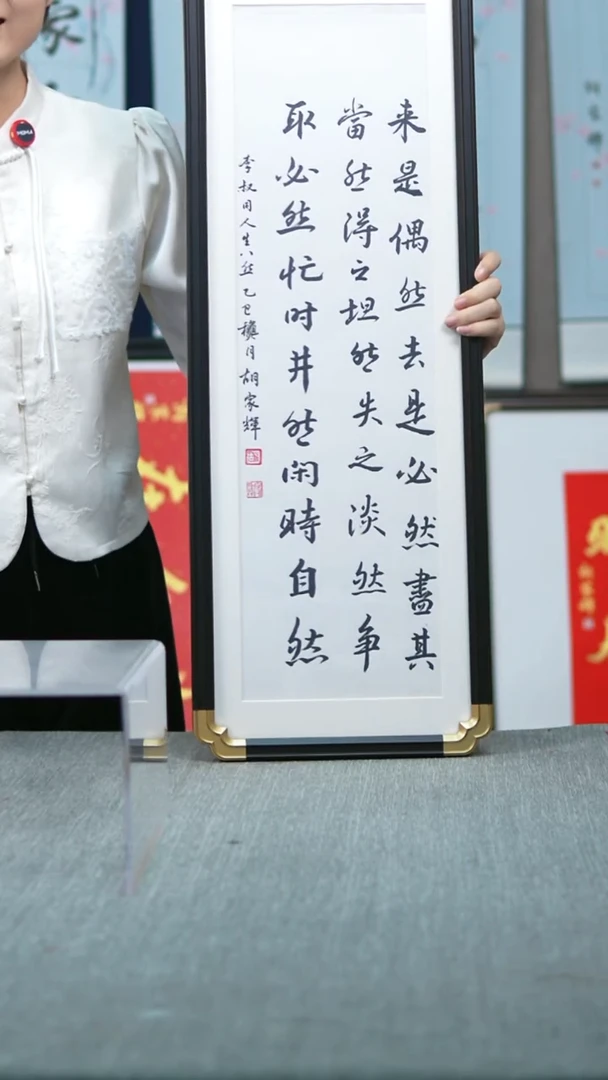 来是偶然去是必然盡其
當然得之坦然失之淡然争
取必然忙时井然闲時自然
李叔同人生八然 乙巳 月 胡家輝
家